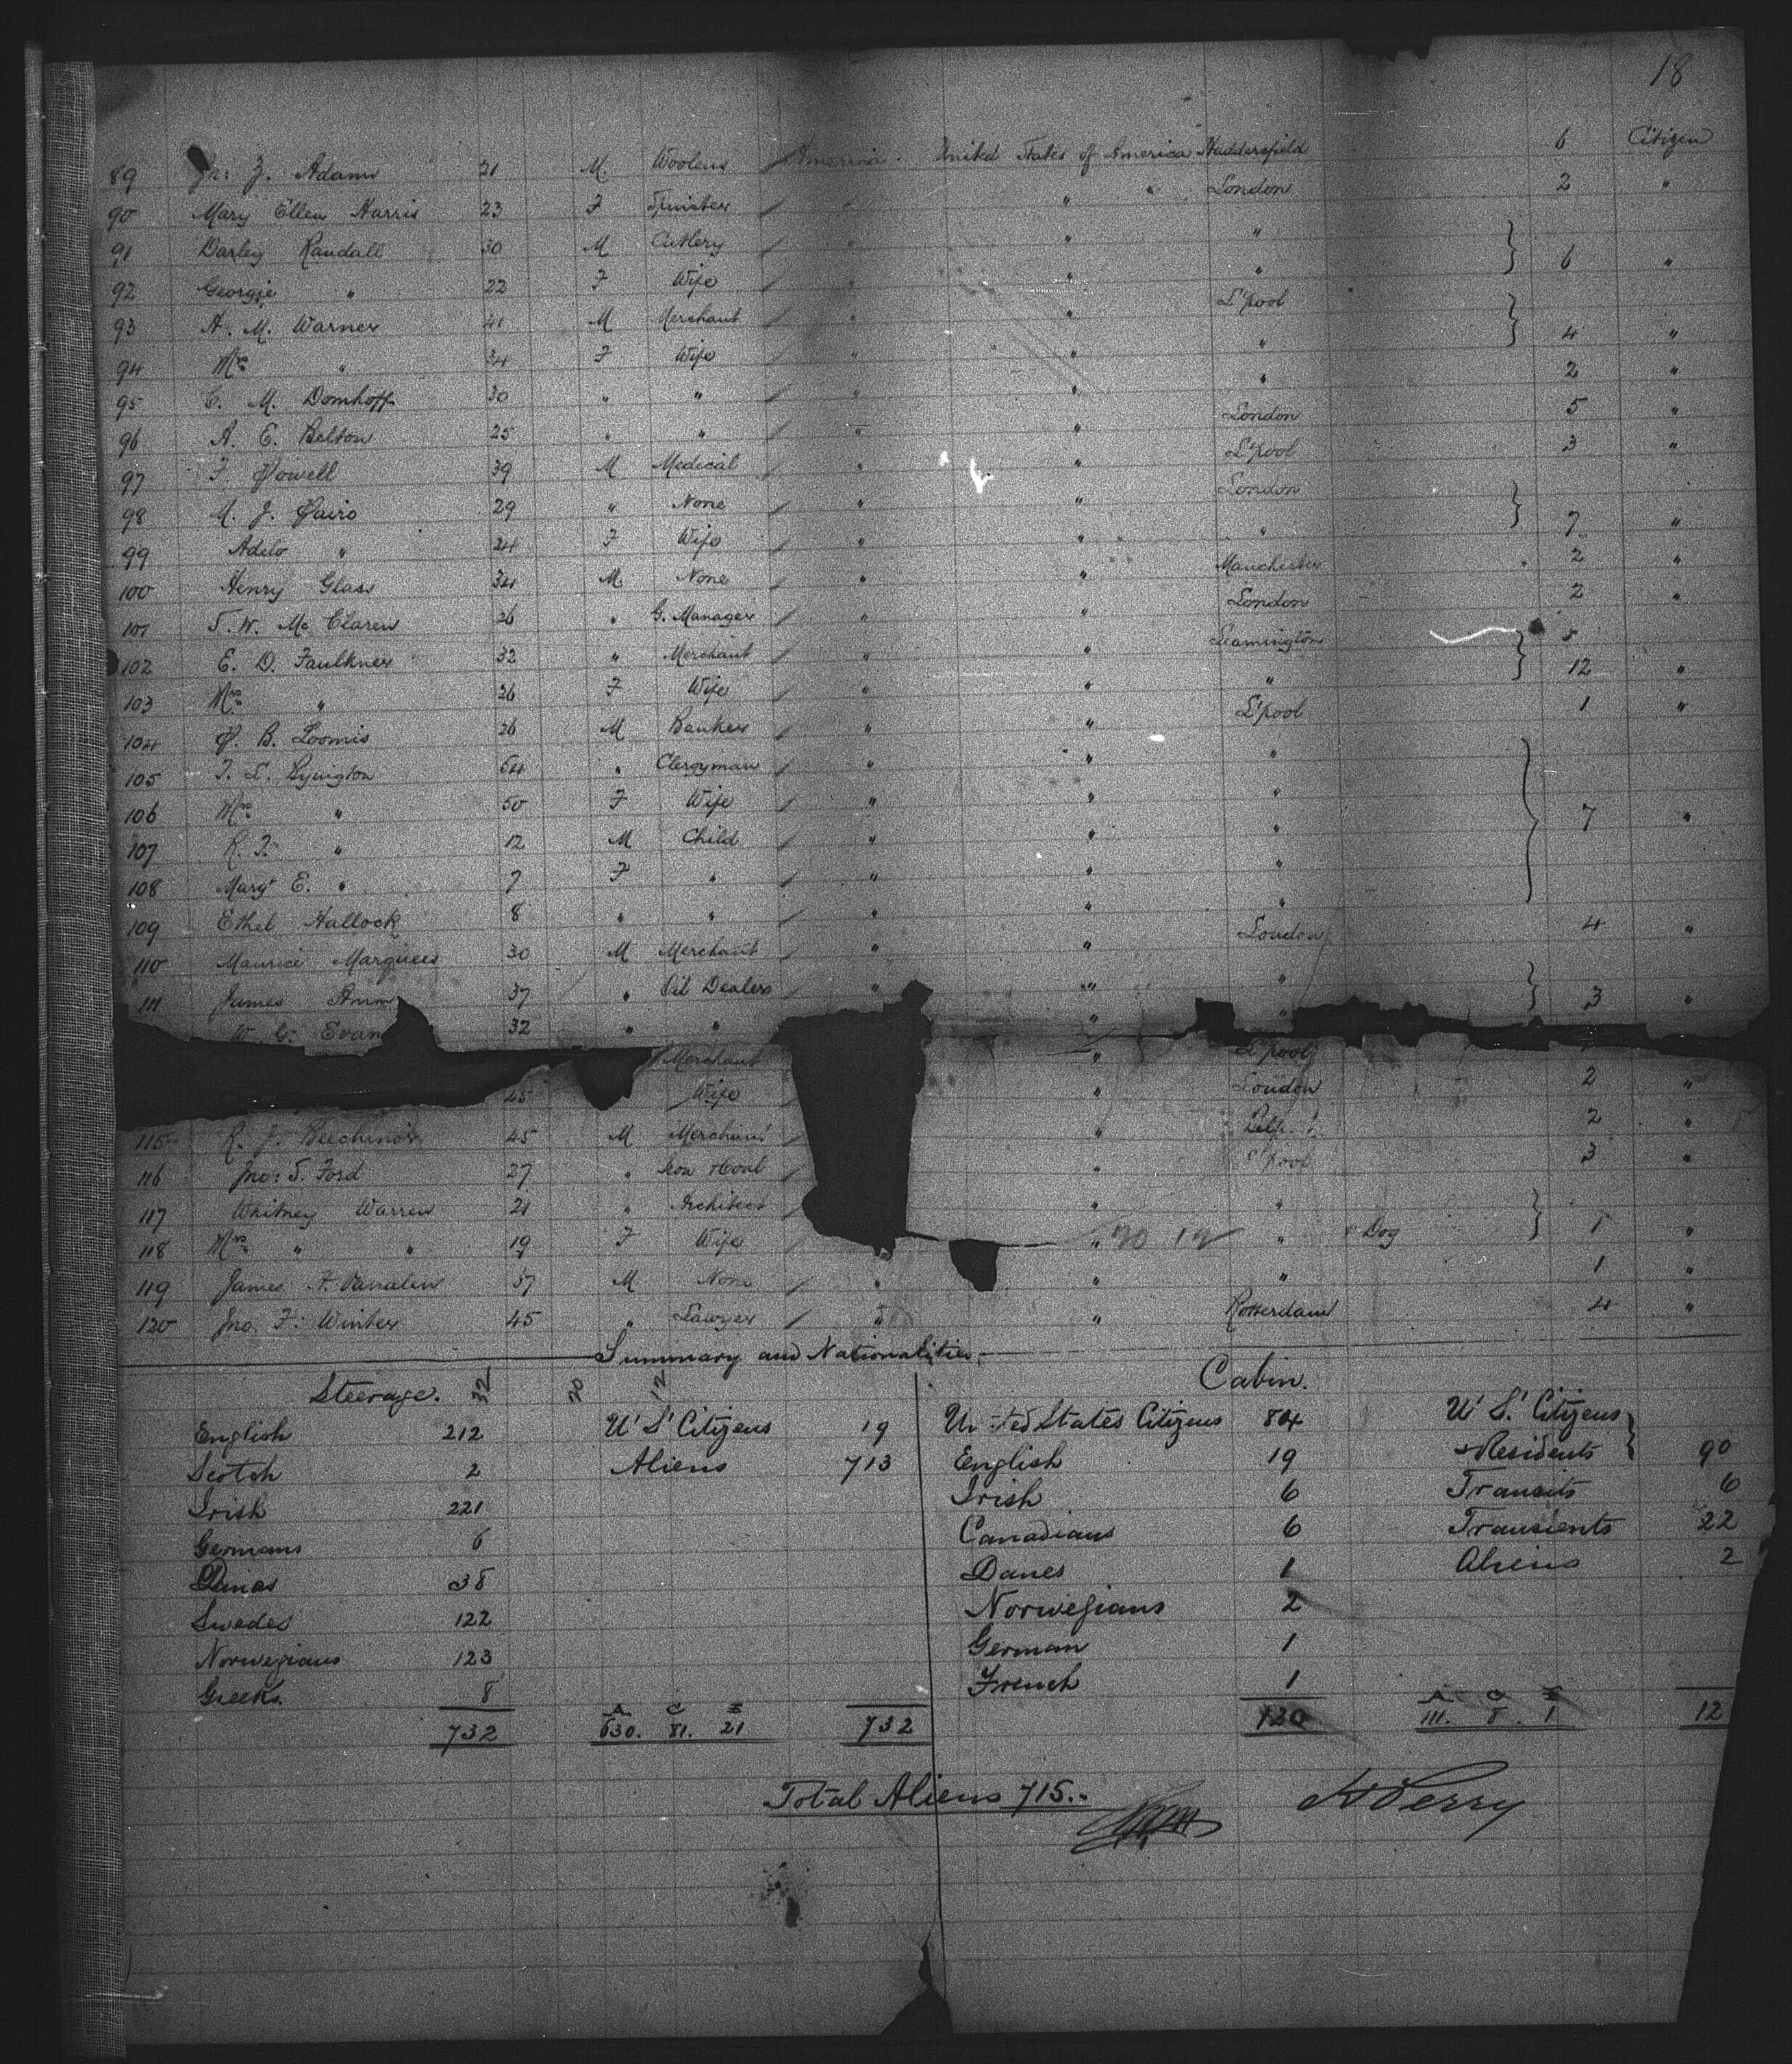 18
89 Adams 21 M. Woolens America. United States of America Huddersfield 6 Citizen
90 Mary Ellen Harris 23 F Spinster " " London 2 "
91 Darley Randall 30 M Cutlery " " "
92 Georgie " 22 F Wife " " " 6 "
93 A. M. Warner 41 M Merchant " " L'pool
94 Mrs " 34 F Wife " " " 4 "
95 C. M. Domhoff 30 " " " " " 2 "
96 A. E. Belton 25 " " " " London 5 "
97 F. Powell 39 M Medical " " L'pool 3 "
98 M. J. Pairo 29 " None " " London
99 " 24 F Wife " " " 7 "
100 Henry Glass 34 M. None " " Manchester 2 "
101 T. W. Mc Claren 26 " G. Manager " " London 2 "
102 E. D. Faulkner 32 " Merchant " " Leamington 5
103 Mrs " 26 F Wife " " " 12 "
104 P. B. Loomis 26 M Banker " " L'pool 1 "
105 T. L. Byington 54 " Clergyman " " "
106 Mrs " 50 F Wife " " "
107 R. T. " 12 M Child " " " 7 "
108 Margt E. " 7 F " " " "
109 Ethel Hallock 8 " " " " "
110 Maurice Marquees 30 M Merchant " " London 4 "
111 James 37 " Oil Dealers " " "
W. G. Evan 32 " " " " 3 "
Merchant " L'pool
45 Wife " London 2 "
115 R. J. Beechinor 45 M Merchant " 2 "
116 Jno: T. Ford 27 " Iron & Coal " L'pool 3 "
117 Whitney Warren 21 " Architect " "
118 Mrs " " 19 F Wife " 20 12 " & Dog 5 "
119 James H. Vanalen 37 M None " " " 1 "
120 Jno. F: Winter 45 " Lawyer " " Rotterdam 4 "
Summary and Nationalities.
Steerage. 32 20 12 Cabin.
English 212 U' S' Citizens 19 United States Citizens 84 U' S.' Citizens
Scotch 2 Aliens 713 English 19 & Residents 90
Irish 221 Irish 6 Transits 6
Germans 6 Canadians 6 Transients 22
Danes 38 Danes 1 Aliens 2
Swedes 122 Norwegians 2
Norwegians 123 German 1
Greeks 8 French 1
A C I A C I
732 630. 81. 21 732 120 111. 8. 1 12
Total Aliens 715.
Perry